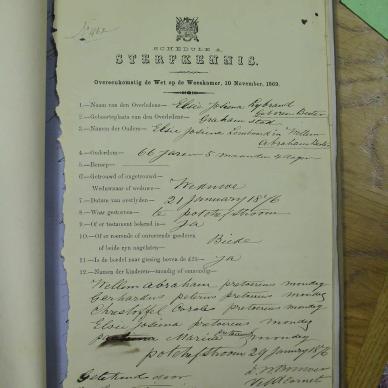 No 462
SCHEDULE A.
STERFKENNIS.
Overeenkomstig de Wet op de Weeskamer, 10 November, 1869.
1.—Naam van den Overledene— Elsie Josina
2.—Geboorteplaats van den Overledene: Graham stad
3.—Namen der Ouders— Elsie Josina en Willem
Abraham
4.—Ouderdom 66 jaren 5 maanden
5.—Beroep—
6.—Getrouwd of ongetrouwd—
Weduwnaar of weduwe— Weduwe
7.—Datum van overlyden 21 January 1876
8.—Waar gestorven— te potchefstroom
9.—Of er testament bekend is— ja
10.—Of er roerende of onroerende goederen
of beide zyn nagelaten— Biede
11.—Is de boedel naar gissing boven de £25— ja
12.—Namen der kinderen—mondig of onmondig—
Willem Abraham pretorius mondig
Gerhardus petrus pretorius mondig
Christoffel Carolus pretorius mondig
Elsie Josina pretorius mondig
Maria pretorius mondig
potchefstroom 29 January 1876
Getekend door